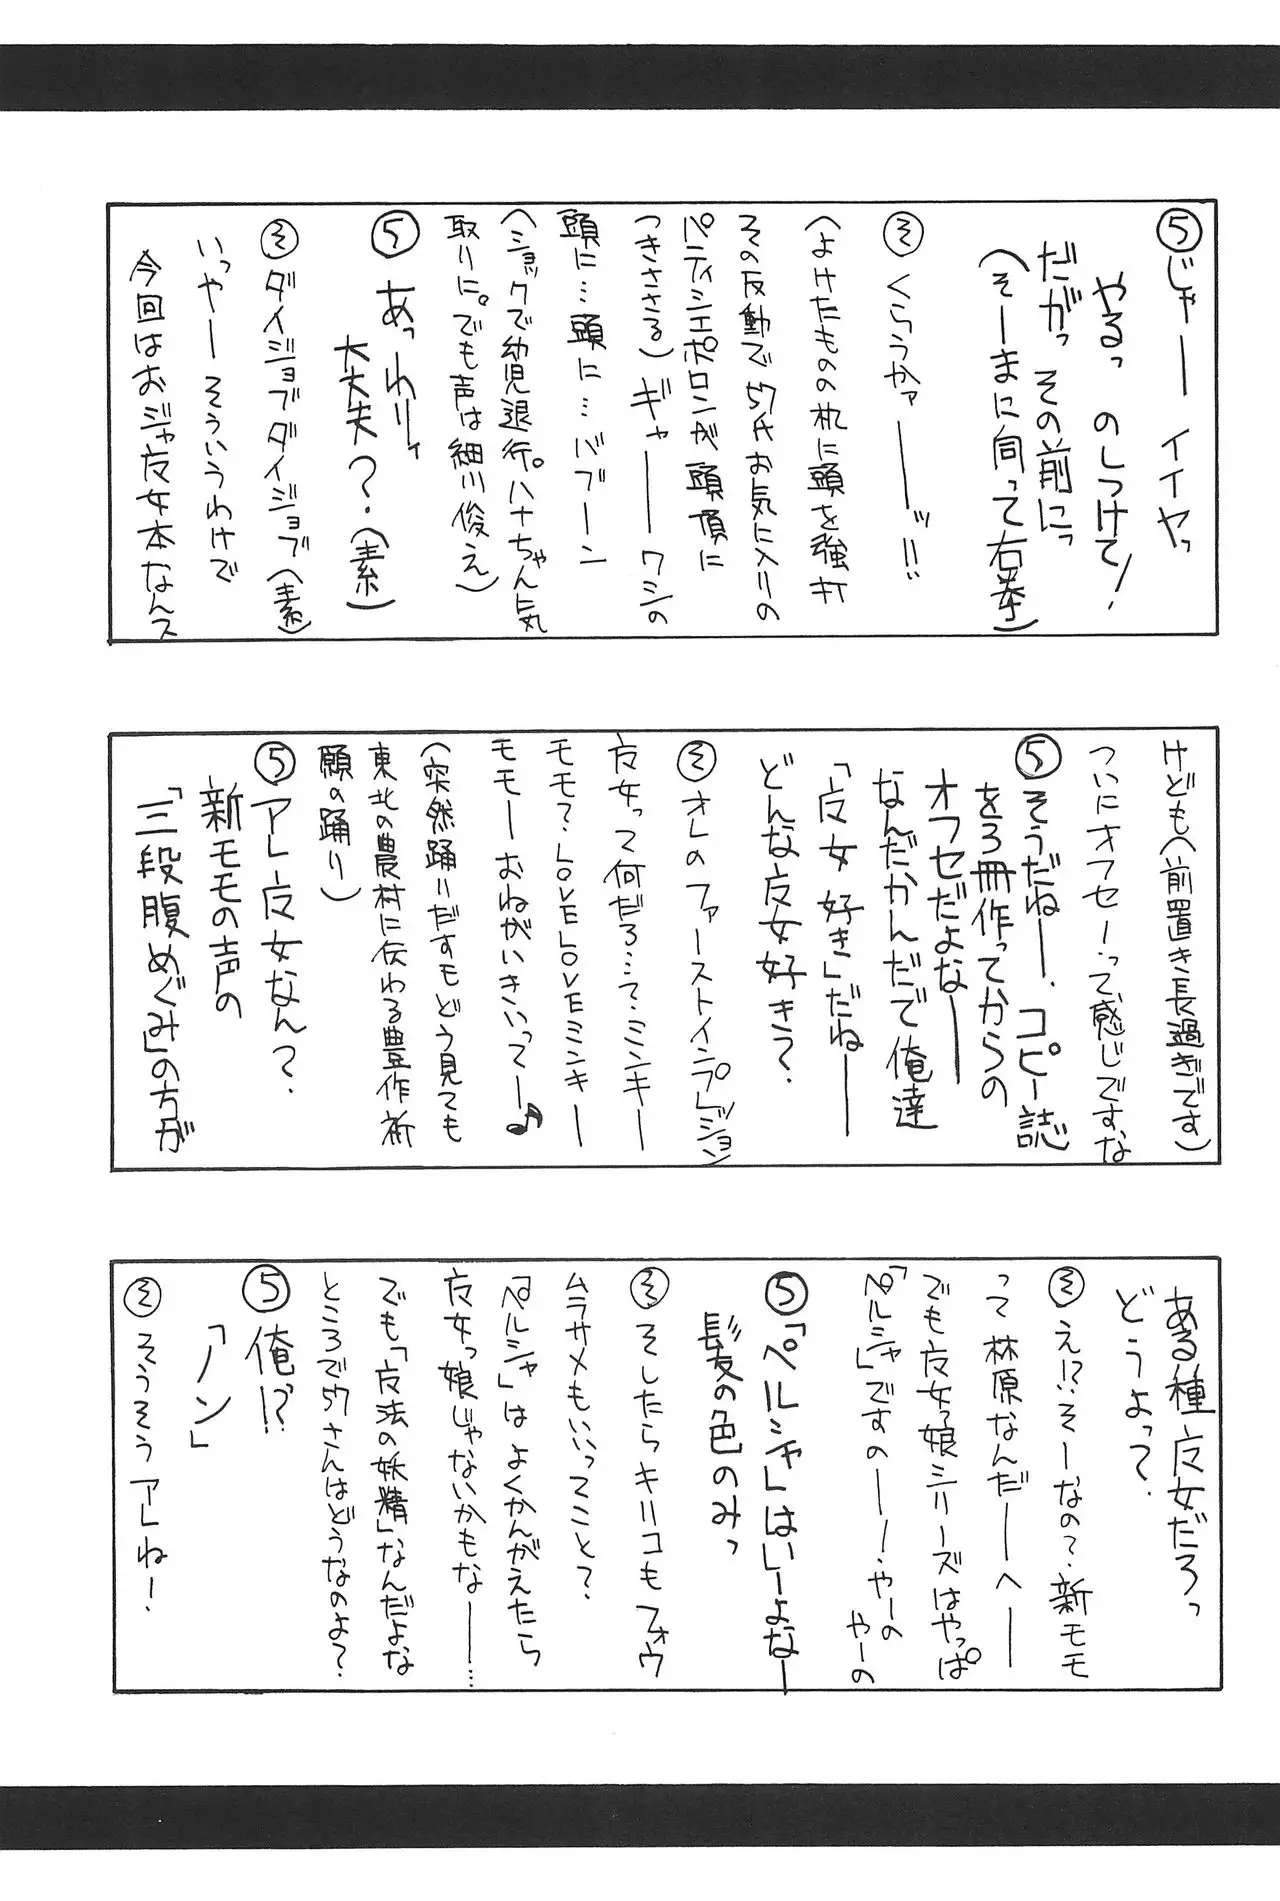 ⑤じゃーー イイヤっ
やるっ のしつけて!
だがっ その前にっ
(そーまに向って右拳)
そ くらうかァーーーッ!!
(よけたものの机に頭を強打
その反動で 氏お気に入りの
パティシエポロンが頭頂に
つきささる)ギャーーーワシの
頭に…頭に…バブーン
(ショックで幼児退行。ハナちゃん気
取りに。でも声は細川俊え)
⑤ あっ わりィ
大丈夫?.(素)
そ ダイジョブダイジョブ(素)
いっやー そういうわけで
今回はおジャ女本なんス
けども(前置き長過ぎです)
ついにオフセーって感じですな
⑤そうだねー. コピー誌
を3冊作ってからの
オフセだよなーー
なんだかんだで俺達
「女好き」だねーーー
どんな女好き?.
そ オレのファーストインプレッション
女って何だろ…?.ミンキーー
モモ?.LOVELOVEミンキーー
モモーーおねがいきいってー♪
(突然踊りだすもどう見ても
東北の農村に伝わる豊作祈
願の踊り)
⑤アレ女なん?.
新モモの声の
「三段腹めぐみ」の方が
ある種女だろっ
どうよって?.
そ え!?.そーなの?.新モモ
って林原なんだーーへーー
でも女っ娘シリーズはやっぱ
「ペルシャ」ですのーー!.やーの
やーの
⑤「ペルシャ」はいーよなー
髪の色のみっ
そ そしたらキリコもフォウ
ムラサメもいいってこと?.
「ペルシャ」はよくかんがえたら
女っ娘じゃないかもなーー…
でも「法の妖精」なんだよな
ところで さんはどうなのよ?.
⑤ 俺!?
「ノン」
そ そうそうアレねー!